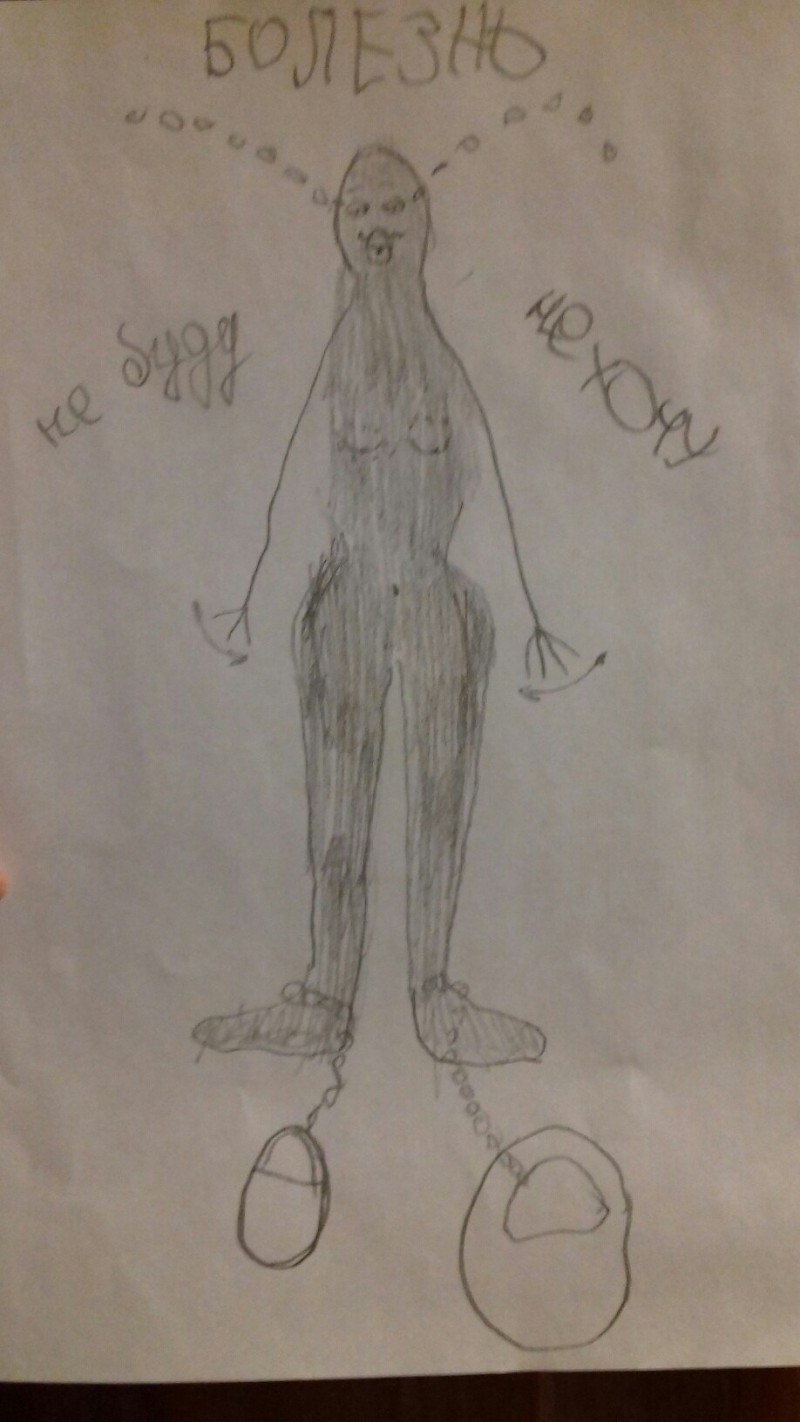 БОЛЕЗНЬ
не буду
не хочу